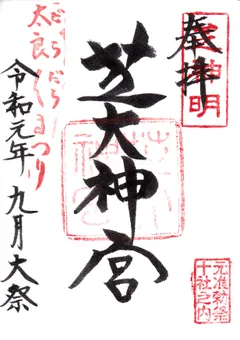 奉拝
元神明
元准勅祭
十社之内
芝大神宮
だらだら
太良くまつり
令和元年九月大祭